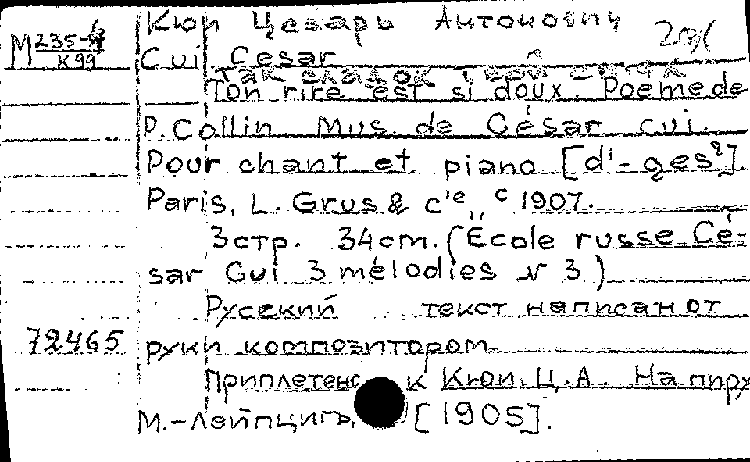 Кюи Цезарь Антонович
М 235-4
К 99
Cui Cesar
Так сладок
Ton rire est si doux. Poeme de
P. Collin Mus. de César Cui.
Pour chant et piano [d'-ges²].
Paris, L. Grus & Cie, c 1907.
3 стр. 34 cm. (École russe Cé-
sar Cui 3 mélodies N 3)
Русский текст написан от
72465 руки композитором
Приплетено к Кюи, Ц.А. На пиру
М.-Лейпциг, [1905].